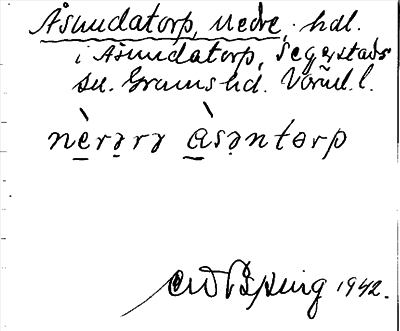 Åsmudatorp, nedre, hdl.
i Åsmudatorp, Segerstads
sn. Grums hd. Värml. l.
nèrərə àsəntɵrp
1942.